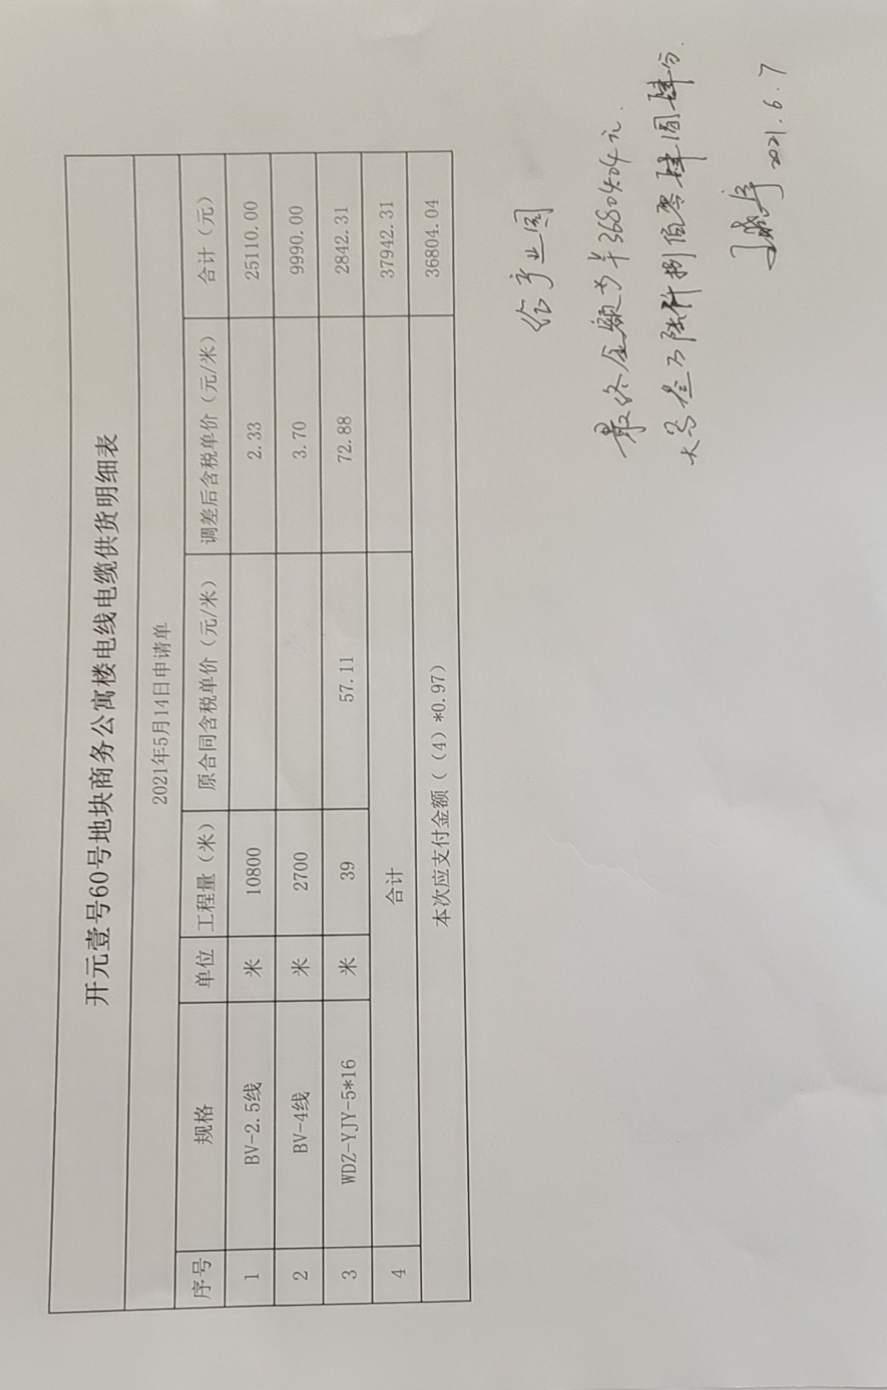 开元壹号60号地块商务公寓楼电线电缆供货明细表
2021年5月14日申请单
序号 规格 单位 工程量（米） 原合同含税单价（元/米） 调差后含税单价（元/米） 合计（元）
1 BV-2.5线 米 10800 2.33 25110.00
2 BV-4线 米 2700 3.70 9990.00
3 WDZ-YJY-5*16 米 39 57.11 72.88 2842.31
4 合计 37942.31
本次应支付金额（（4）*0.97） 36804.04
给产业园
最终金额为￥36804.04元.
大写叁万陆仟捌佰零肆圆肆分.
2021.6.7